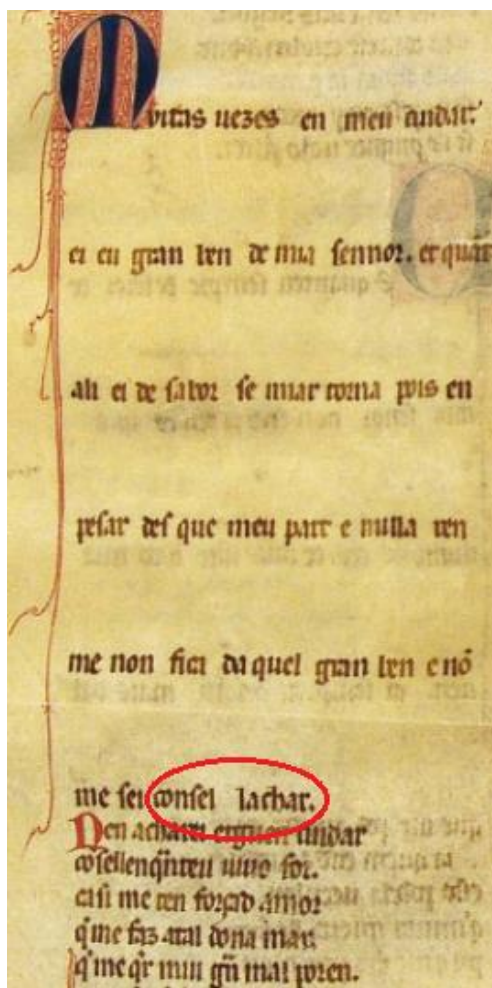 Muitas uezes en meu cuidar.
ei eu gran ben de mia sennor. e quãt
ali ei de sabor se miar torna pois en
pesar des que meu part e nulla ren
me non fica da quel gran ben e nõ
me sei consel lachar.
Nen acharei erguen cuidar
cõsellenq̃nteu uiuo for.
casi me ten forçad amor
q̃ me faz atal dona mar.
q̃ me q̃r mui gñ mal poren.